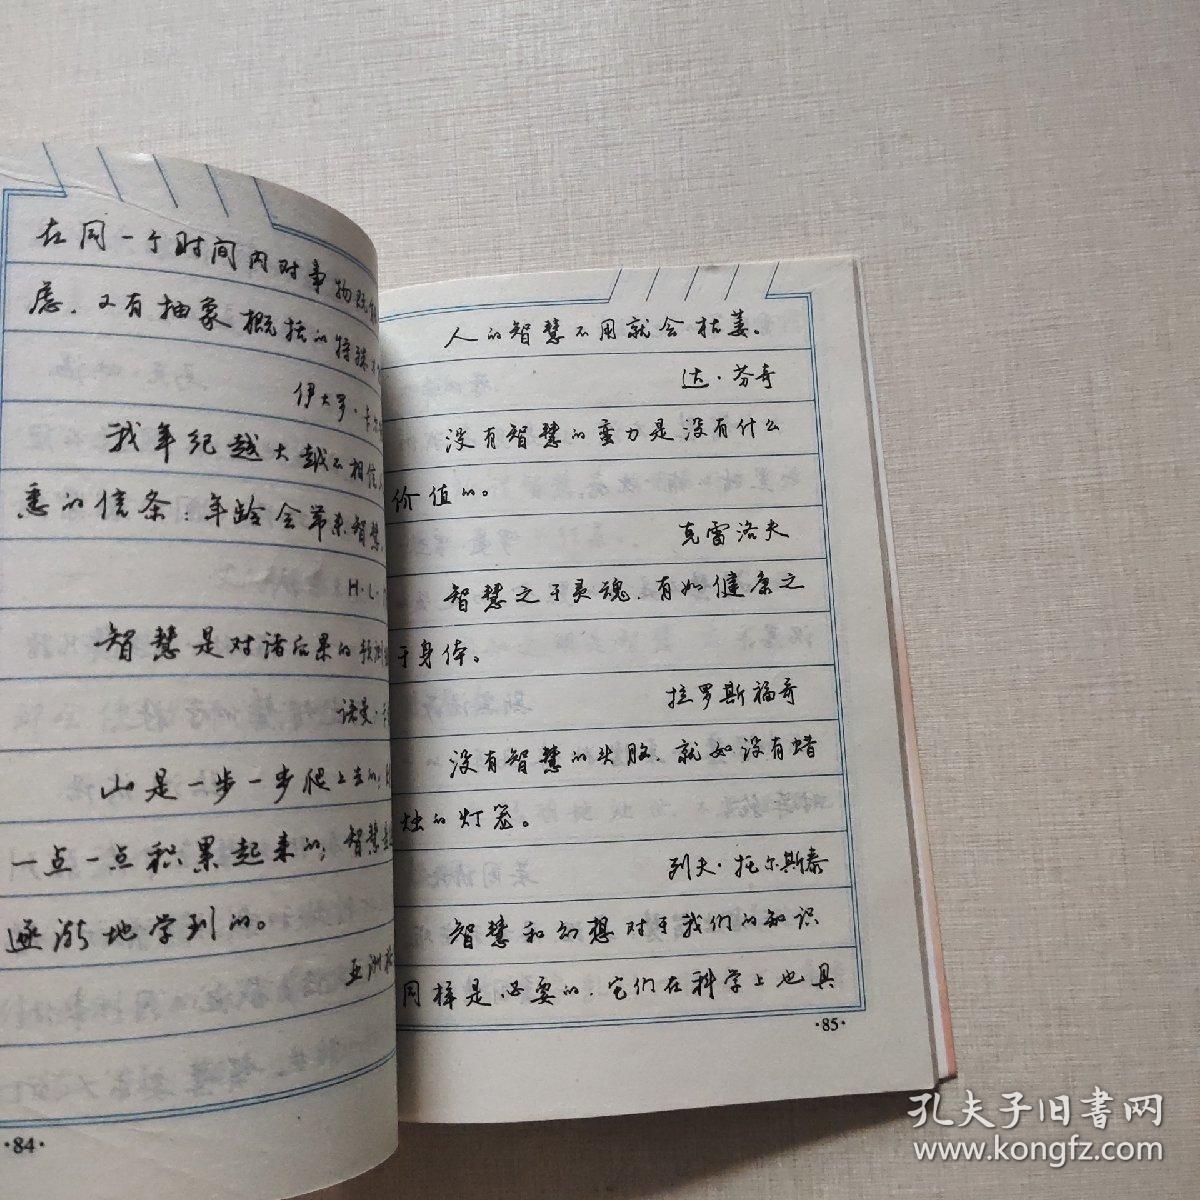 在同一个时间内对事物
虑，又有抽象概括的特殊
伊大罗·卡尔
我年纪越大越不相信
悉的信条：年龄会带来智慧。
H·L·
智慧是对话后果的预测
诺曼·
山是一步一步爬上去的，
一点一点积累起来的；智慧是
逐渐地学到的。
亚洲
·84·
人的智慧不用就会枯萎。
达·芬奇
没有智慧的蛮力是没有什么
价值的。
克雷洛夫
智慧之于灵魂，有如健康之
于身体。
拉罗斯福哥
没有智慧的头脑，就如没有蜡
烛的灯笼。
列夫·托尔斯泰
智慧和幻想对于我们的知识
同样是必要的，它们在科学上也具
·85·
孔夫子旧书网
www.kongfz.com